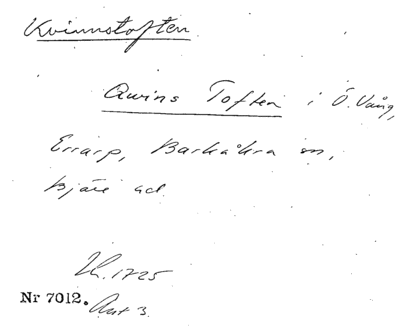 Kvinnstoften
Qwins Toften i Ö. Vång,
Errarp, Barkåkra sn,
Bjäre hd
LM. 1725
Nr 7012. Akt 3.